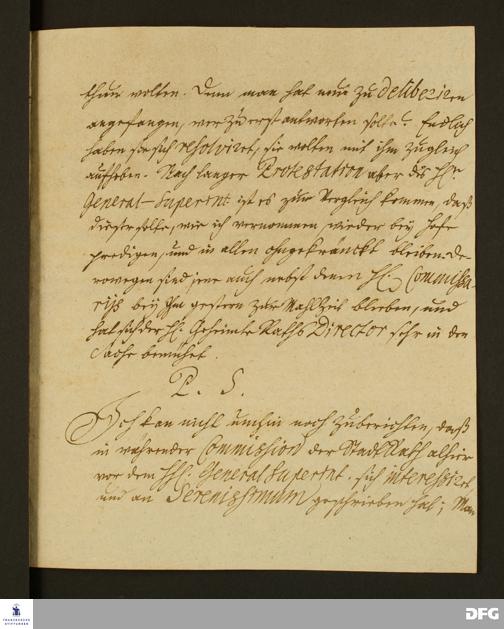 thun wolten. Denn man hat nun zu deliberiren
angefangen, wer zu erst antworten solte? Endlich
haben sie sich resolviret, sie wolten mit ihm zugleich
aufheben. Nach langer Protestation aber des H.
General-Superint ist es zum Vergleich kommen, daß
dieser solte, wie ich vernommen, wieder bey Hofe
predigen, und in allen ohngekränckt bleiben. De-
rowegen sind jene auch nebst denen H. Commissa-
rijs bey Ihm gestern zur Mahlzeit blieben, und
hat sich der H. Geheimte Raths Director sehr in der
Sache bemühet.
P. S.
Ich kan nicht umhin noch zuberichten, daß
in währender Commission der Stadt Rath alhier
vor dem H. General Superint. sich interessiret
und an Serenissimum geschrieben hat; Man
FRANCKESCHE
STIFTUNGEN
DFG